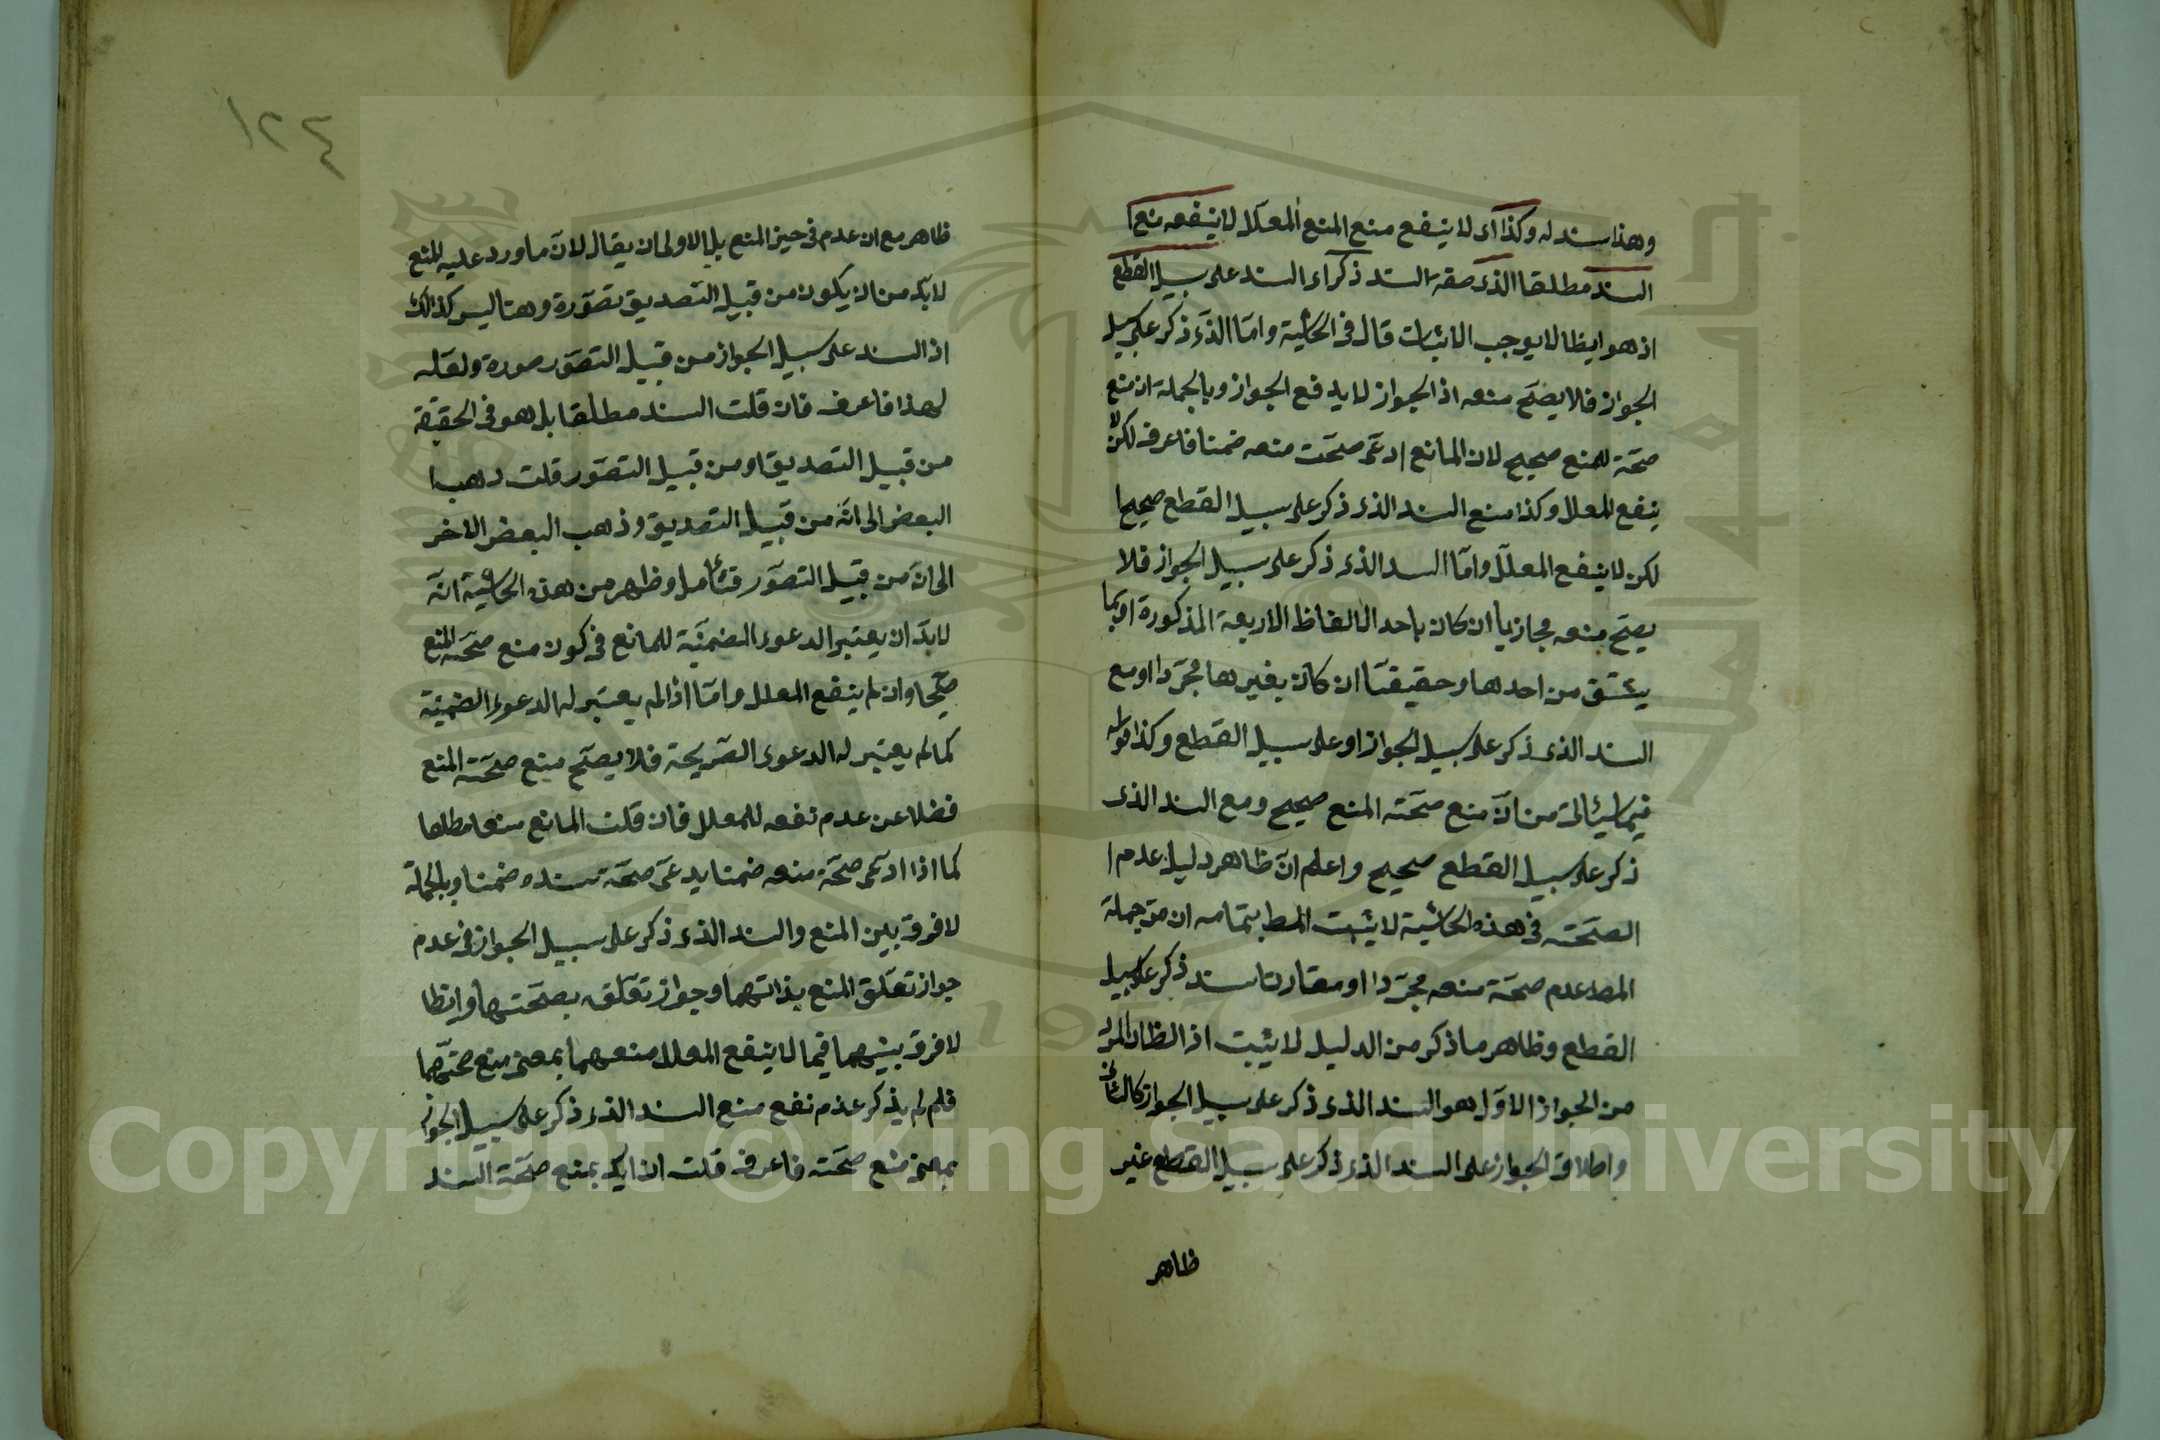 وهذا سند له وكذا اى لا ينفع منع المنع المعلل لا ينفعه منع ا
السند مطلقا الذى صفة السند ذكر اى السند على سبيل القطع
اذ هو ايظا لا يوجب الاثبات قال فى الحاشية واما الذى ذكر على سبيل
الجواز فلا يصح منعه اذ الجواز لا يدفع الجواز وبالجملة ان منع
صحة المنع صحيح لان المانع ادعى صحت منعه ضمنا فاعرف لكن لا
ينفع المعلل وكذا منع السند الذى ذكر على سبيل القطع صحيحا
لكن لا ينفع المعلل واما السند الذى ذكر على سبيل الجواز فلا
يصح منعه مجازيا ان كان باحد الالفاظ الاربعة المذكورة او بما
يشتق من احدها وحقيقتا ان كان بغيرها مجردا او مع
السند الذى ذكر على سبيل الجواز او على سبيل القطع وكذا قوله
فيما سيئاتى من ان منع صحة المنع صحيح ومع السند الذى
ذكر على سبيل القطع صحيح واعلم ان ظاهر دليل عدم ا
الصحة فى هذه الحاشية لا يثبت المط بتمامه ان من جملة
المط عدم صحة منعه مجردا او مقارنا سند ذكر على سبيل
القطع وظاهر ما ذكر من الدليل لا يثبت اذ الظا ان المراد
من الجواز الاول هو السند الذى ذكر على سبيل الجواز كالثانى
واطلاق الجواز على السند الذى ذكر على سبيل القطع غير
ظاهر
١٢٤
ظاهر مع ان عدم فى حيز المنع بل الاولى ان يقال لان ما ورد عليه المنع
لا بد من ان يكون من قبيل التصديق تصورة وهنا ليس كذالك
اذ السند على سبيل الجواز من قبيل التصور صورة ولعله
لهذا فاعرف فان قلت السند مطلقا بل هو فى الحقيقة
من قبيل التصديق او من قبيل التصور قلت ذهب ا
البعض الى انه من قبيل التصديق وذهب البعض الاخر
الى انه من قبيل التصور فتئامل وظهر من هذه الحاشية انه
لا بد ان يعتبر الدعوى الضمنية للمانع فى كون منع صحة المنع
صحيحا وان لم ينفع المعلل واما اذا لم يعتبر له الدعوى الضمنية
كما لم يعتبر له الدعوى الصريحة فلا يصح منع صحة المنع
فضلا عن عدم نفعه للمعلل فان قلت المانع منعا مطلقا
كما اذا ادعى صحة منعه ضمنا يدعى صحة سنده ضمنا وبالجملة
لا فرق بين المنع والسند الذى ذكر على سبيل الجواز فى عدم
جواز تعلق المنع بذاتهما وجواز تعلقه بصحتهما وايظا
لا فرق بينهما فيما لا ينفع المعلل منعهما بمعنى منع صحتهما
فلم لم يذكر عدم نفع منع السند الذى ذكر على سبيل الجواز
بمعنى منع صحته فاعرف قلت ان ايد بمنع صحة السند